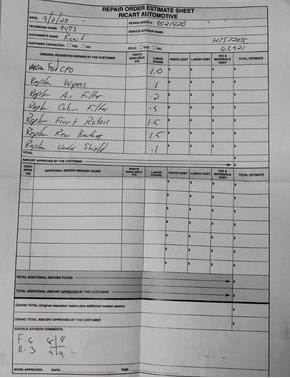 REPAIR ORDER ESTIMATE SHEET
RICART AUTOMOTIVE
DATE: 9/2/23
REPAIR ORDER #: 3521420
TECHNICIAN NAME: 9473
SERVICE ADVISOR NAME:
CUSTOMER'S NAME: Ricart
HT5
63,521
CUSTOMER CONTACTED: YES NO
SOLD: YES NO
ORIGINAL REQUESTED REPAIRS BY THE CUSTOMER
PARTS AVAILABLE Y/N
LABOR HOURS
PARTS COST
LABOR COST
TAX & MATERIALS COST
TOTAL ESTIMATE
Ford CPO 1.0
Replace Wipers .1
Replace Air Filter .2
Replace Cabin Filter
Replace Front Rotors 1.5
Replace Rear Brakes 1.5
Replace Under Shield .1
AMOUNT APPROVED BY THE CUSTOMER
CUST. APPR. Y/N
ADDITIONAL NEEDED REPAIRS FOUND
PARTS AVAILABLE Y/N
LABOR HOURS
PARTS COST
LABOR COST
TAX & MATERIALS COST
TOTAL ESTIMATE
TOTAL ADDITIONAL REPAIRS FOUND
TOTAL ADDITIONAL AMOUNT APPROVED BY THE CUSTOMER
GRAND TOTAL (Original requested repairs plus additional needed repairs)
GRAND TOTAL AMOUNT APPROVED BY THE CUSTOMER
SERVICE ADVISOR COMMENTS:
F-6 8 8
R-3 9 9
WORK APPROVED: DATE: TIME: